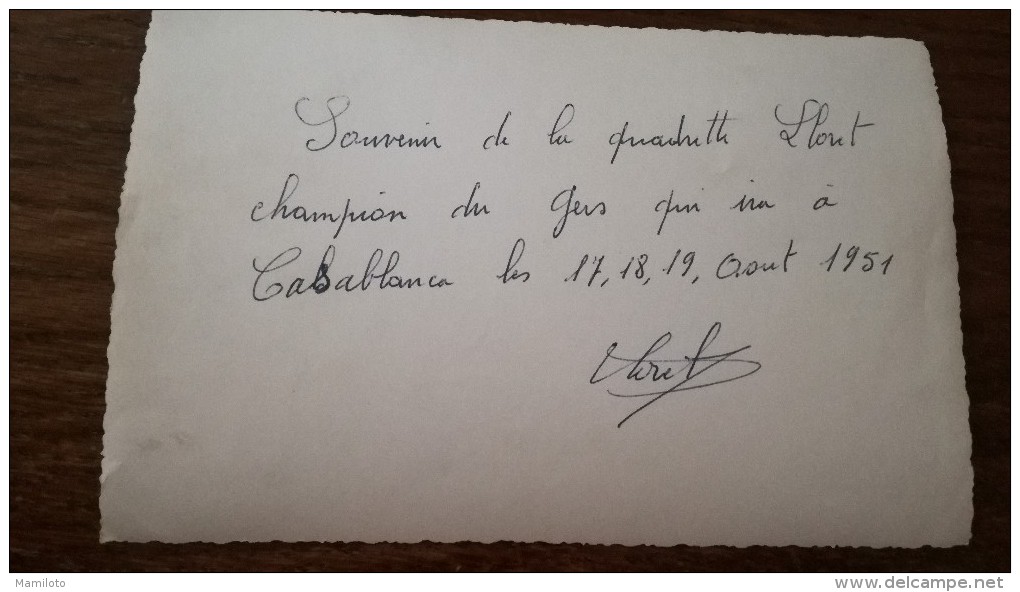 Souvenir de la quadrette Lloret
champion du Gers qui ira à
Casablanca les 17, 18, 19, Aout 1951
Lloret
Mamiloto
www.delcampe.net